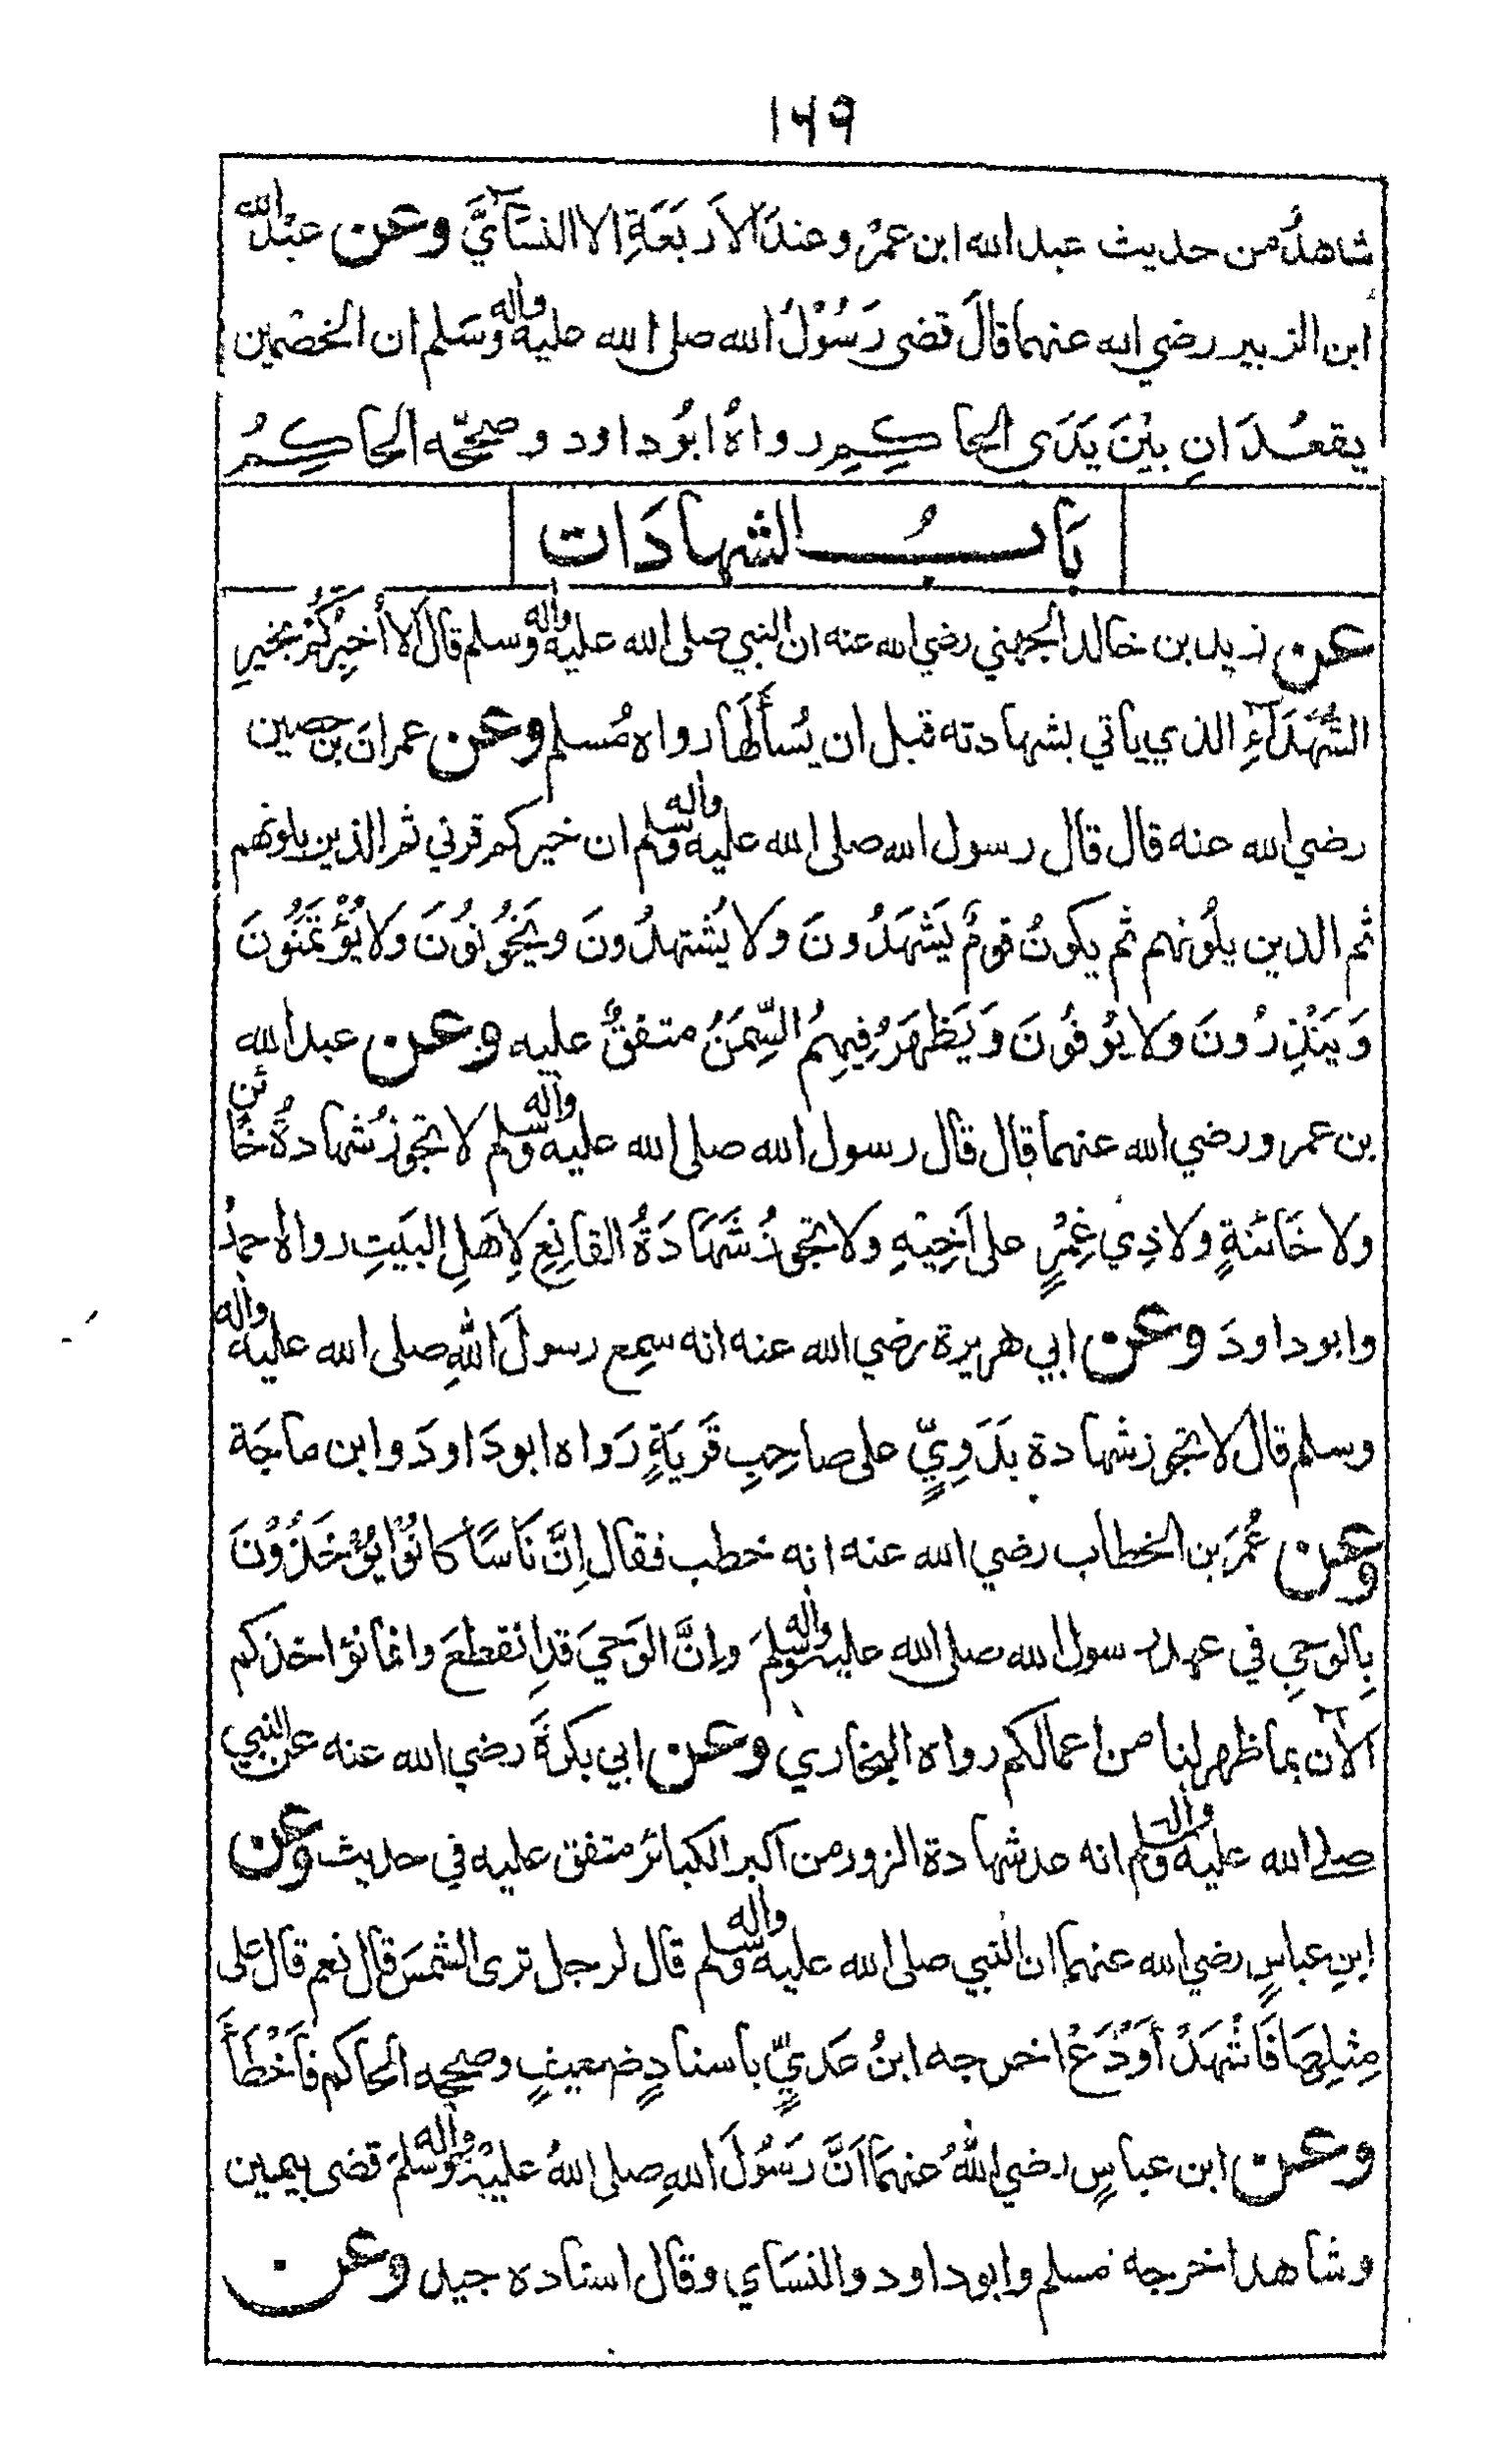 ١٦٩
شاهدٌ من حديث عبد الله ابن عمرْ وعندَ الاَربَعَةِ الا النسَآئيَّ وعن عبْد الله
ابن الزبير رضي الله عنهما قالَ قضى رَسُوْلُ الله صلى الله عليه وآله وسَلم ان الخصْمين
يقعُدَانِ بيْنَ يَدَي الحاكِمِ رواهُ ابُو داود وصحّحه الحاكِمُ
بَابُ الشهادَات
عن زيد بن خالد الجهني رضي الله عنه ان النبي صلى الله عليه وآله وسلم قال ألا أُخبِرُكُمْ بخيرِ
الشُّهَدَآءِ الذي ياتي بشهادته قبل ان يُسأَلَها رواه مُسلم وعن عمرانَ بن حصين
رضي الله عنه قال قال رسول الله صلى الله عليه وآله وسلم ان خيركم قرني ثم الذين يلونهم
ثم الذين يلُونهم ثم يكونُ قومٌ يَشهَدُونَ ولا يُشتهدُونَ ويَخُونُونَ ولا يُؤْتمَنُونَ
وَيَنْذِرُونَ ولا يُوفُونَ وَيَظهَرُ فِيهِمُ السِّمَنُ متفقٌ عليه وعن عبد الله
بن عمرو رضي الله عنهما قال قال رسول الله صلى الله عليه وآله وسلم لا تجوزُ شهادةُ خائن
ولا خَائنَةٍ ولا ذِي غِمْرٍ على اَخِيْهِ ولا تجوزُ شَهَادَةُ القانِعِ لِاَهلِ البَيتِ رواه احمدُ
وابو داودَ وعن ابي هريرة رضي الله عنه انه سمِع رسولَ اللهِ صلى الله عليه وآله
وسلم قال لا تجوز شهادة بدَوِيٍّ على صاحِبِ قَريَةٍ رَواه ابو دَاودَ وابن ماجَة
وعن عُمَرَ بن الخطاب رضي الله عنه انه خطب فقال إنَّ نَاسًا كانُوْا يُؤْخَذُوْنَ
بِالوَحيِ في عهد رسول الله صلى الله عليه وآله وسلمَ وإنَّ الوَحيَ قدِ انقطعَ وانما نؤاخذكم
الآن بما ظهر لنا من اعمالكم رواه البخاري وعن ابي بكرَةَ رضي الله عنه عن النبي
صلى الله عليه وآله وسلم انه عد شهادة الزور من اكبر الكبائر متفق عليه في حديث وعن
ابنِ عباسٍ رضي الله عنهما ان النبي صلى الله عليه وآله وسلم قال لرجل ترى الشمسَ قال نعم قال على
مِثلِهَا فَاشْهَدْ أَوْدَعْ اخرجه ابنُ عَديٍّ باسنادٍ ضعيفٍ وصححه الحاكم فأَخْطَأَ
وعن ابن عباسٍ رضي اللهُ عنهمَا اَنَّ رَسُولَ اللهِ صلى اللهُ عليْهِ وآله وسلمَ قضى بيمين
وشاهد اخرجه مسلم وابو داود والنسَاي وقال اسناده جيد وعن